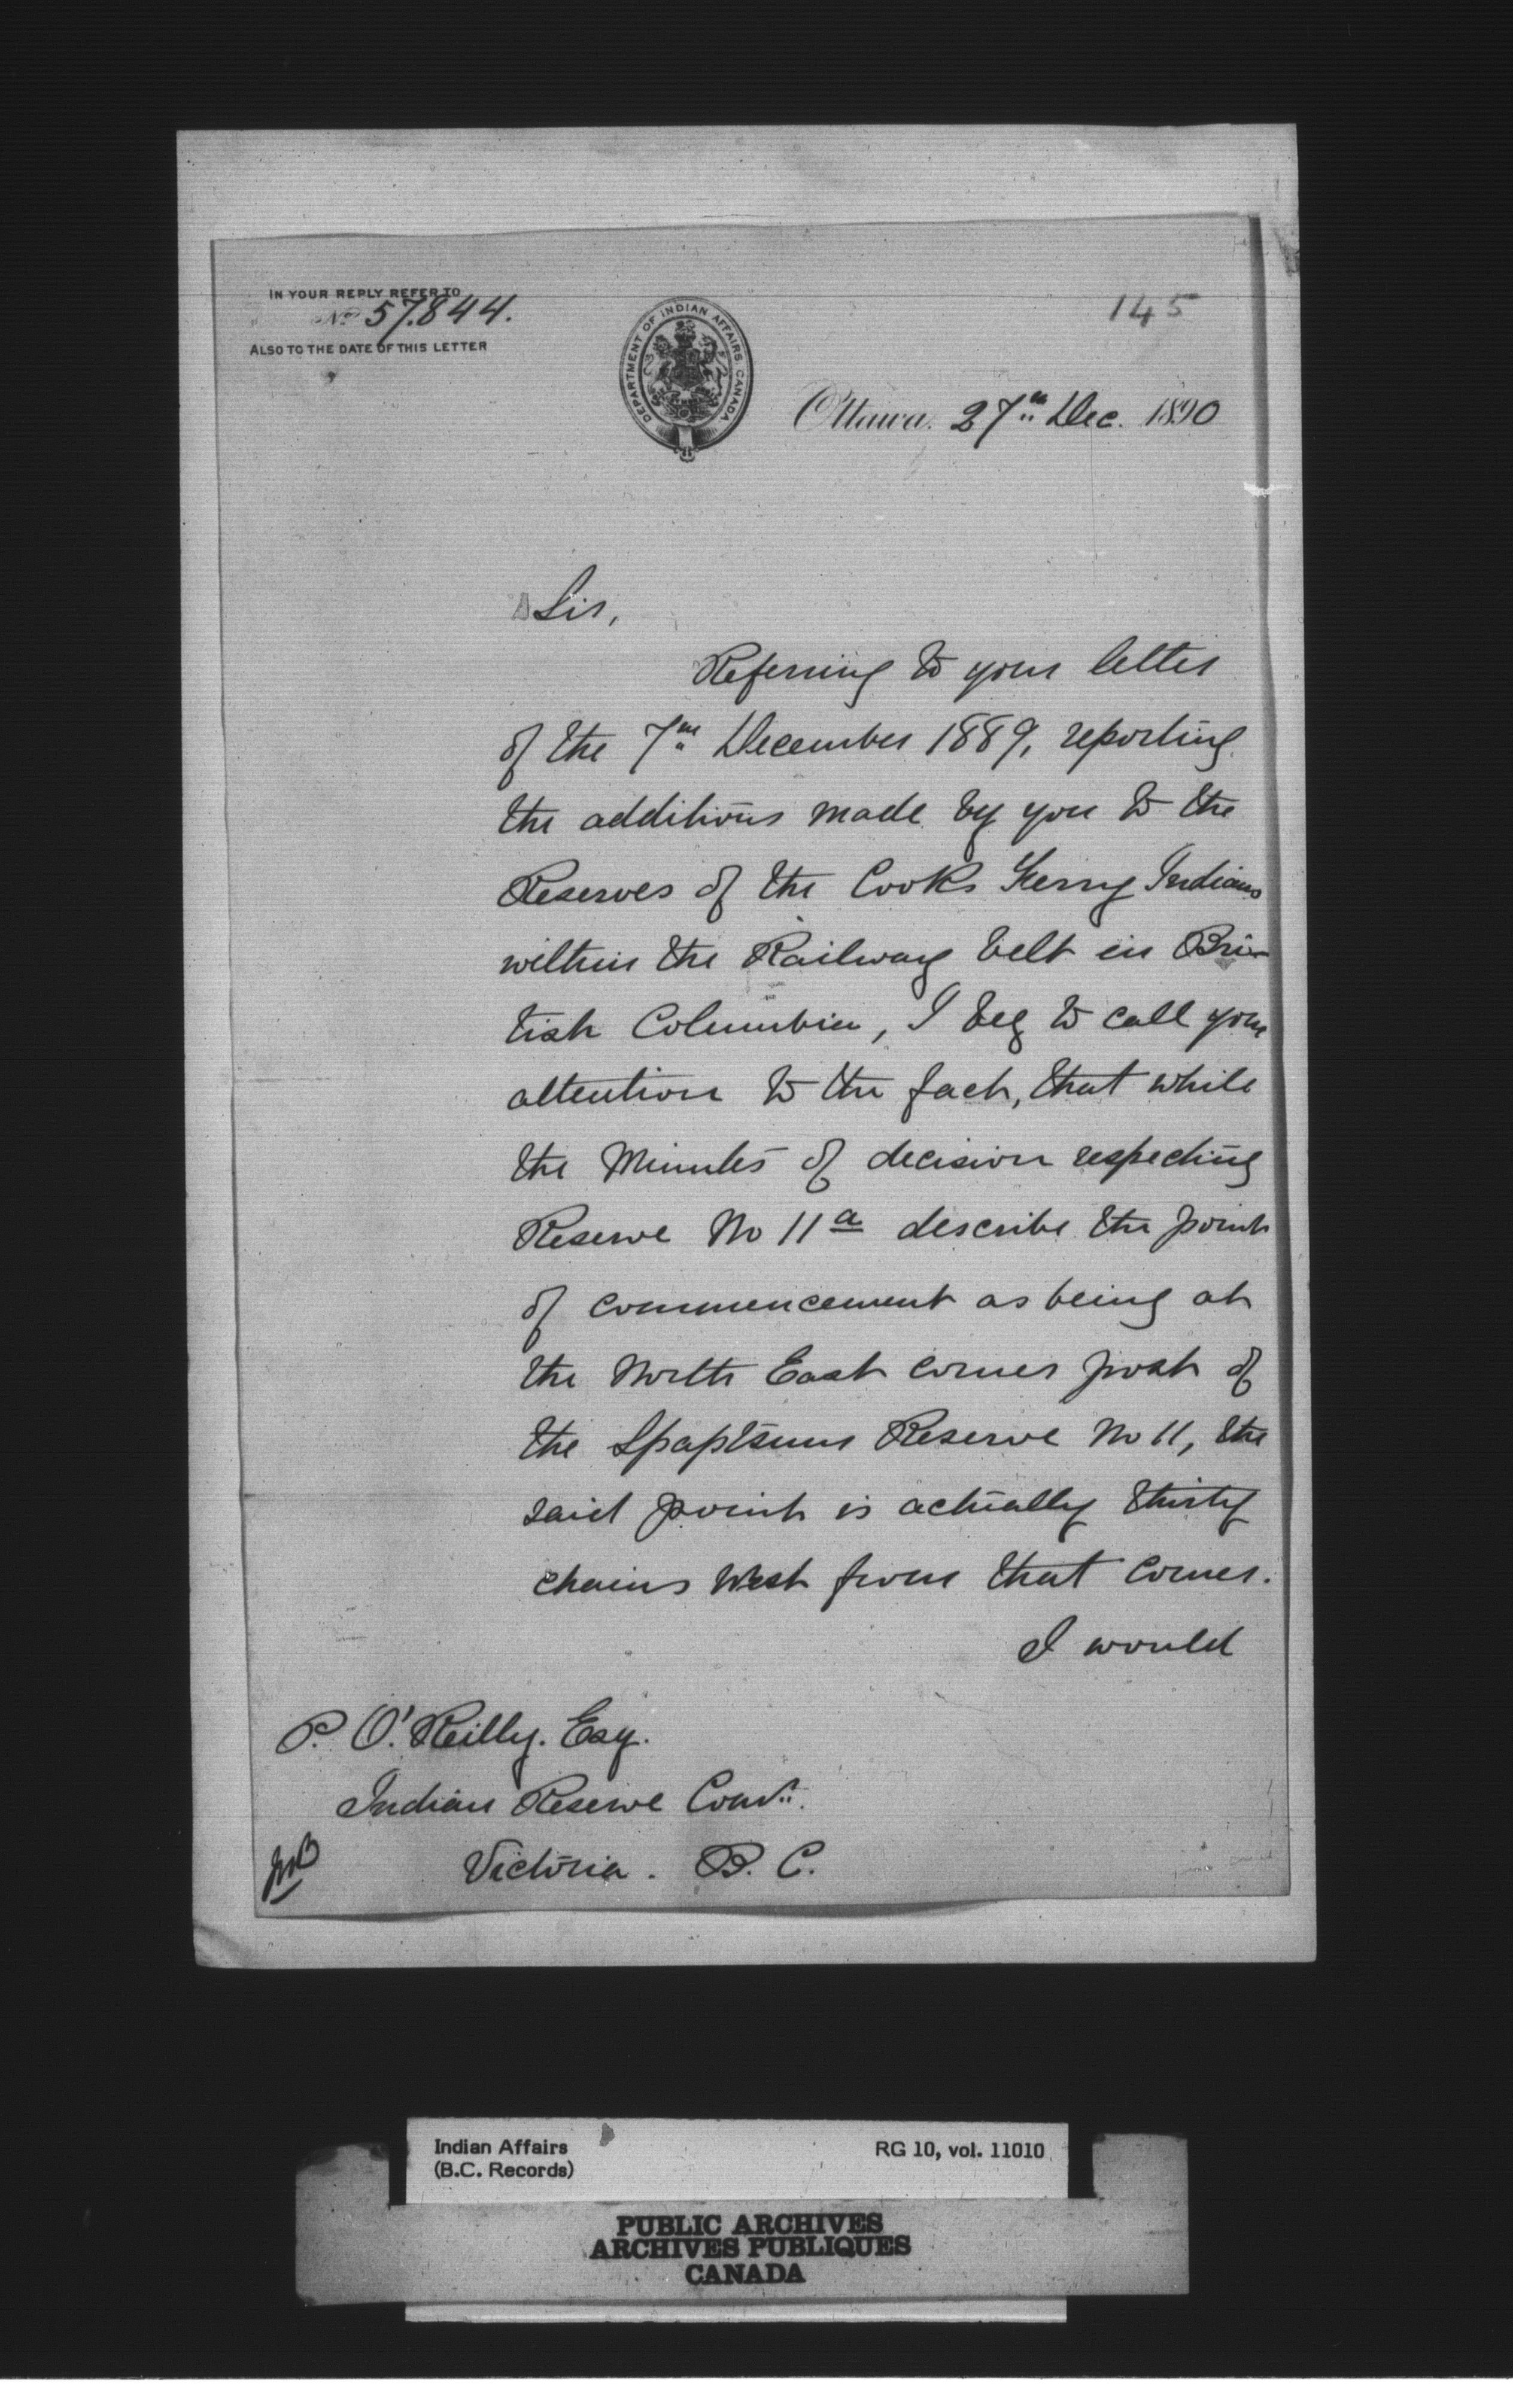 IN YOUR REPLY REFER TO
No 57.844.
ALSO TO THE DATE OF THIS LETTER
DEPARTMENT OF INDIAN AFFAIRS CANADA
145
Ottawa. 27th Dec. 1890
Sir,
Referring to your letter
of the 7th December 1889, reporting
the additions made by you to the
Reserves of the Cooks Ferry Indians
within the Railway belt in Bri-
tish Columbia, I beg to call your
attention to the fact, that while
the Minutes of decision respecting
Reserve No 11a describe the point
of commencement as being at
the North East corner post of
the Spaptsum Reserve No 11, the
said point is actually thirty
chains West from that corner.
I would
P. O'Reilly. Esq.
Indian Reserve Comr.
Victoria. B. C.
Indian Affairs
(B.C. Records)
RG 10, vol. 11010
PUBLIC ARCHIVES
ARCHIVES PUBLIQUES
CANADA